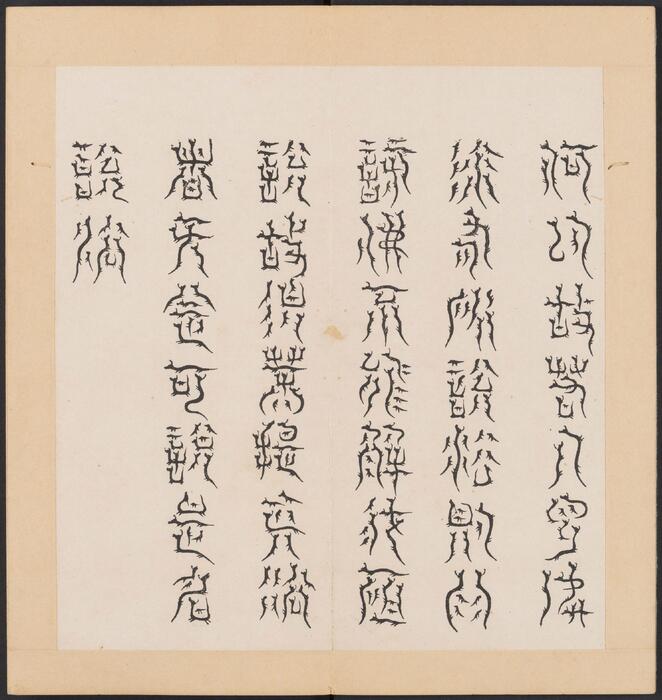 何以故若人言如
來有所說法即為
謗佛不能解我所
說故須菩提說法
者無法可說是名
說法